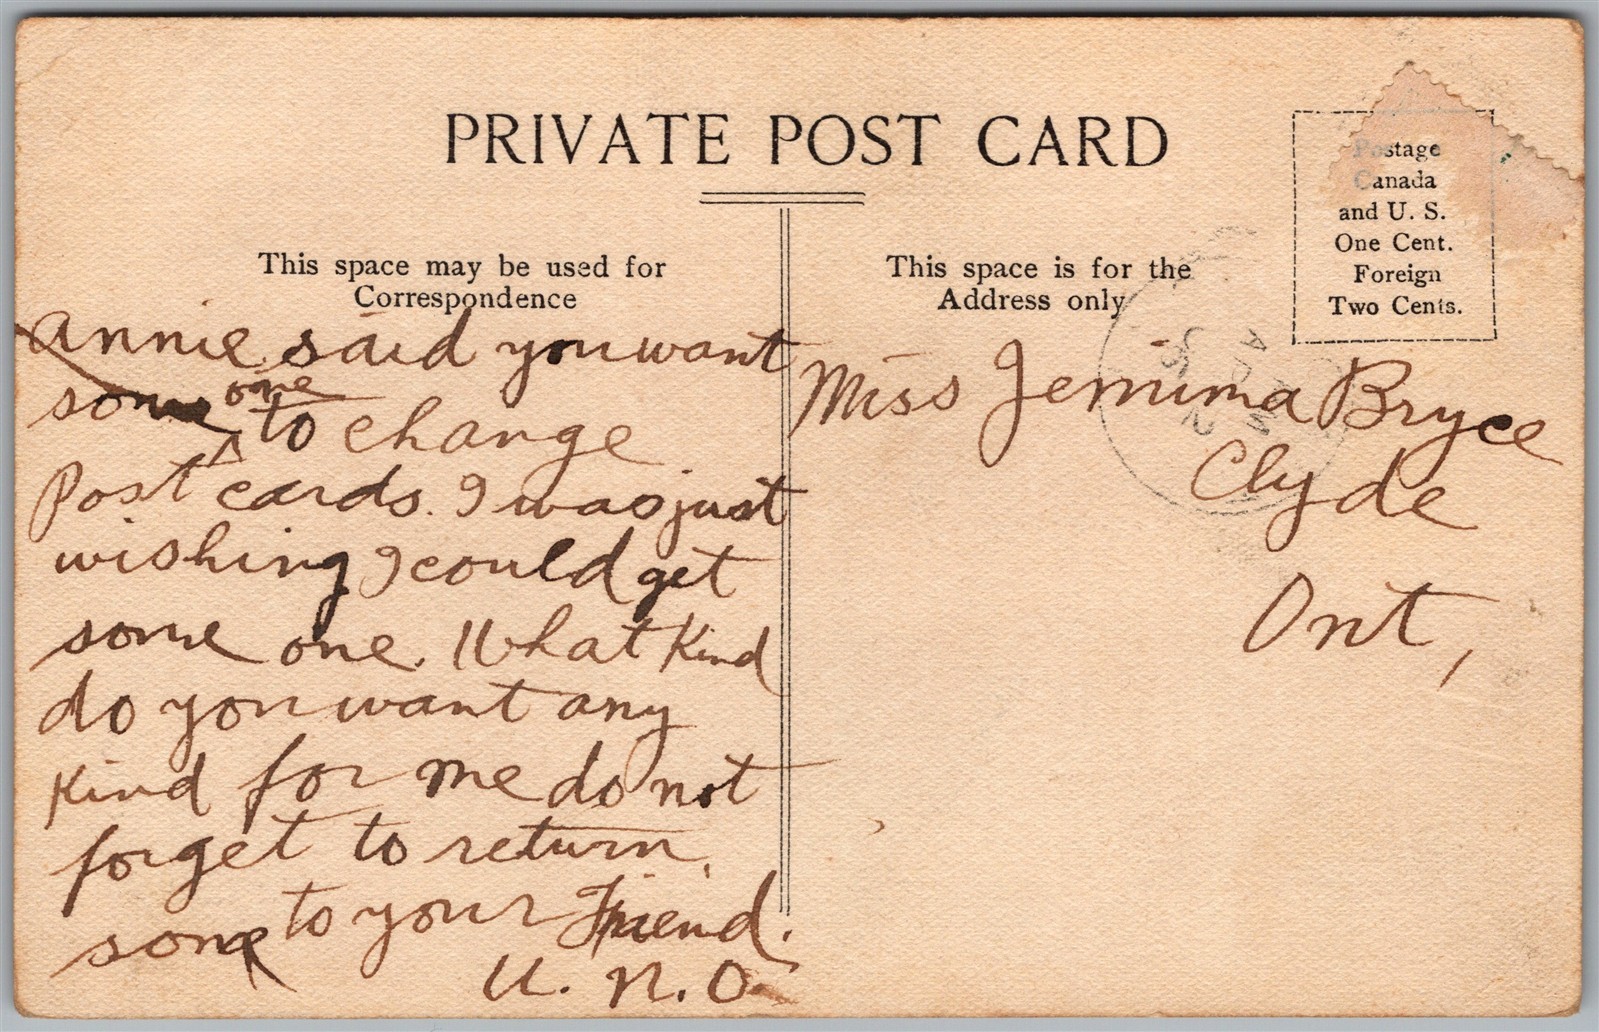 PRIVATE POST CARD
Postage
Canada
and U. S.
One Cent.
Foreign
Two Cents.
This space may be used for
Correspondence
This space is for the
Address only
annie said you want
some one to change
Post cards. I was just
wishing I could get
some one. What Kind
do you want any
Kind for me do not
forget to return
some to your Friend.
U. N. O.
Miss Jemima Bryce
Clyde
Ont,